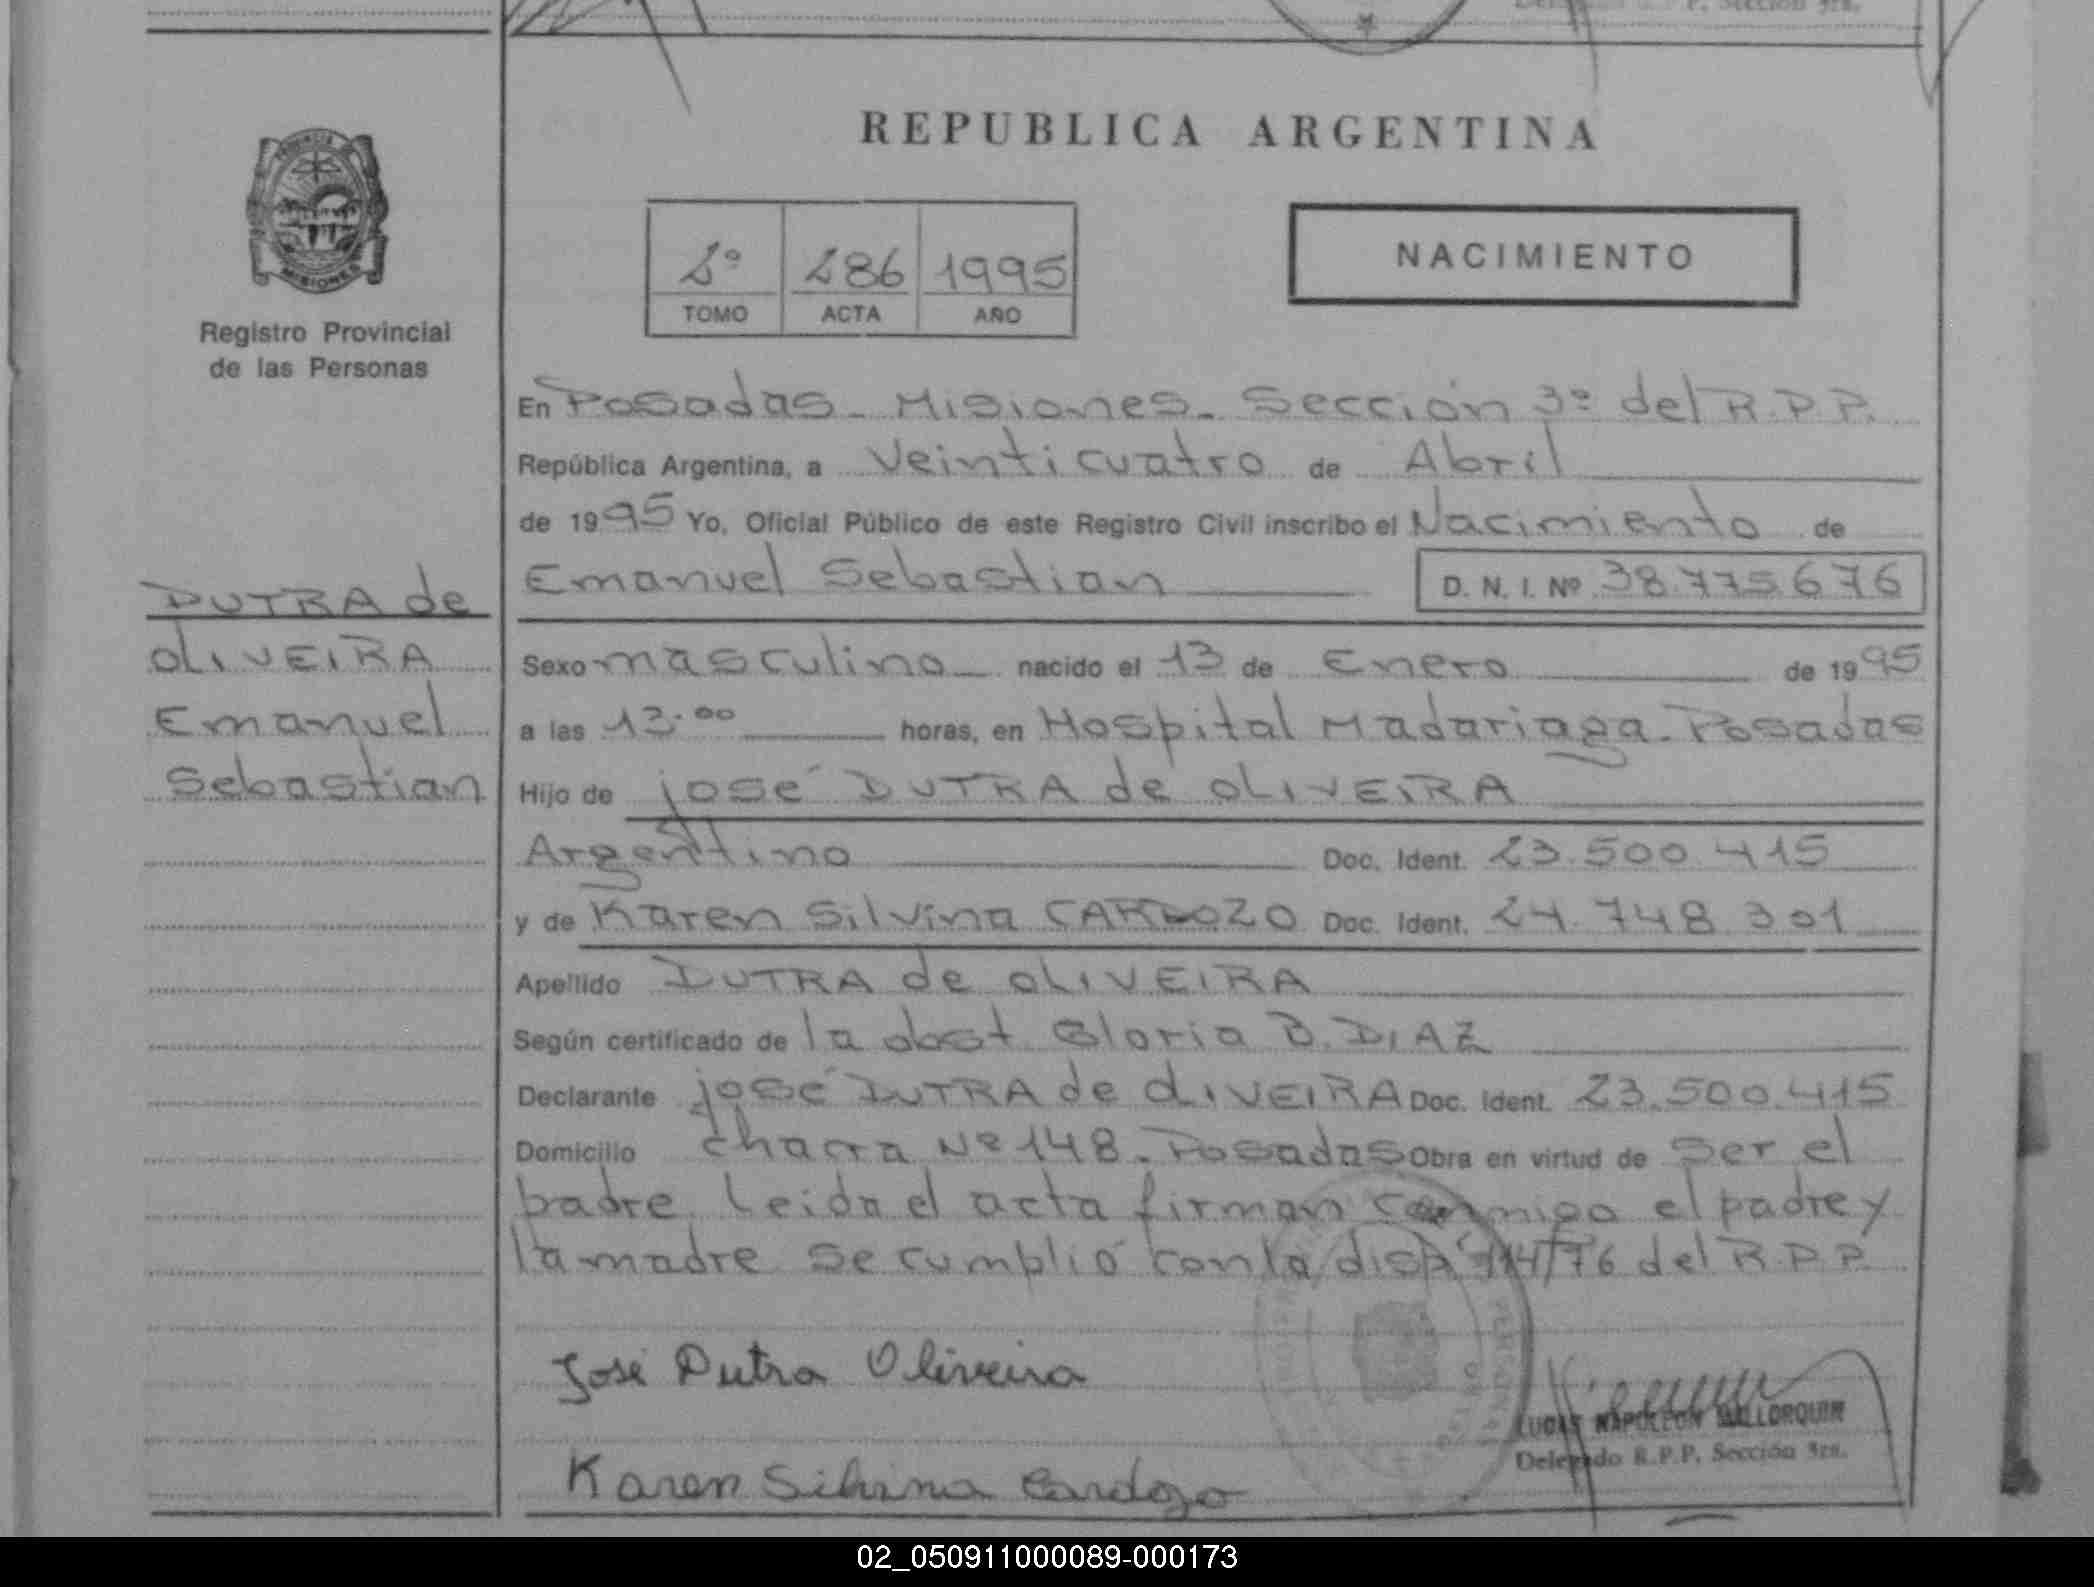 REPUBLICA ARGENTINA
PROVINCIA DE
MISIONES
Registro Provincial
de las Personas
2º 286 1995
TOMO ACTA AÑO
NACIMIENTO
En Posadas - Misiones - Sección 3º del R.P.P.
República Argentina, a Veinticuatro de Abril
de 1995 Yo, Oficial Público de este Registro Civil inscribo el Nacimiento de
Emanuel Sebastian D. N. I. Nº 38.775.676
DUTRA de
OLIVEIRA
Emanuel
Sebastian
Sexo masculino nacido el 13 de Enero de 1995
a las 13.00 horas, en Hospital Madariaga - Posadas
Hijo de josé DUTRA de OLIVEIRA
Argentino Doc. Ident. 23.500.415
y de Karen Silvina CARDOZO Doc. Ident. 24.748.301
Apellido DUTRA de OLIVEIRA
Según certificado de la obst Gloria B. DIAZ
Declarante josé DUTRA de OLIVEIRA Doc. Ident. 23.500.415
Domicilio chacra Nº 148 - Posadas Obra en virtud de ser el
padre. Leida el acta firman conmigo el padre y
la madre se cumplió con la disp. 114/76 del R.P.P.
José Dutra Oliveira
LUCAS NAPOLEON MALLORQUIN
Delegado R.P.P. Sección 3ra.
Karen Silvina Cardozo
02_050911000089-000173